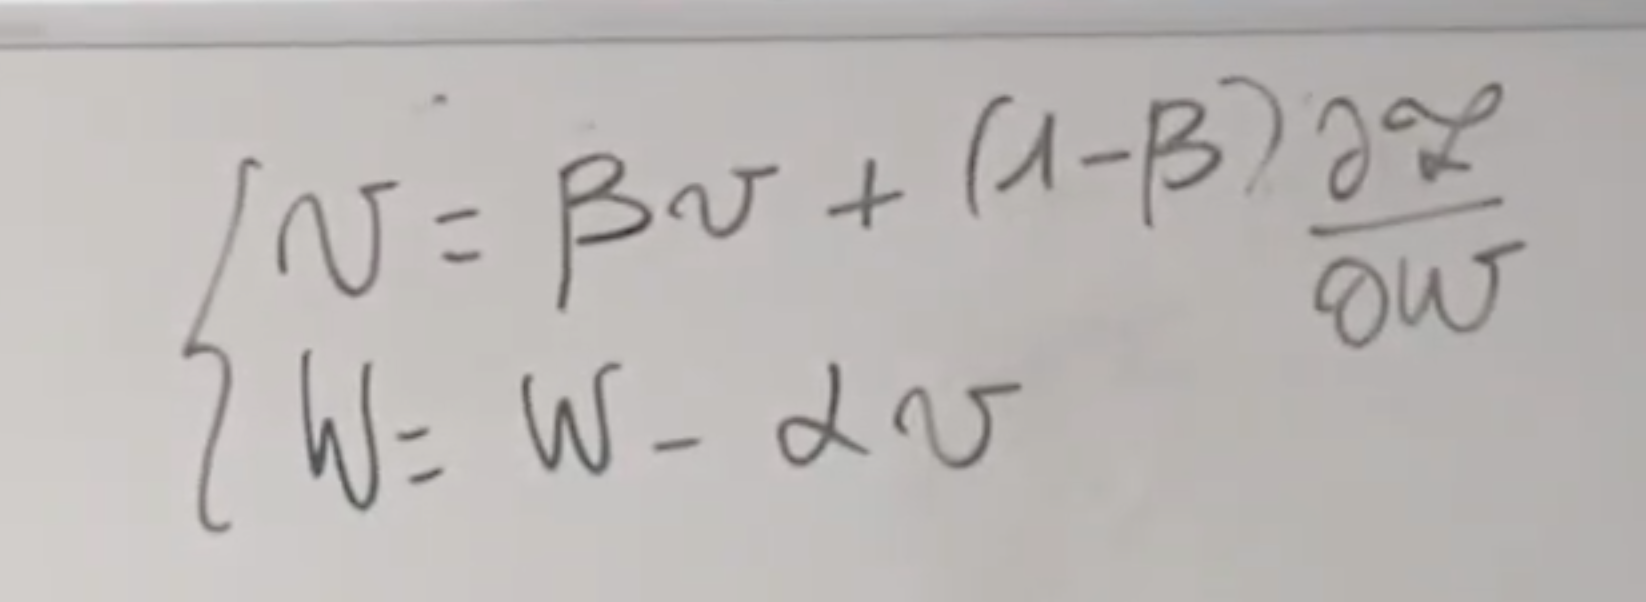 v = βv + (1-β) ∂ℒ/∂W
W = W - αv